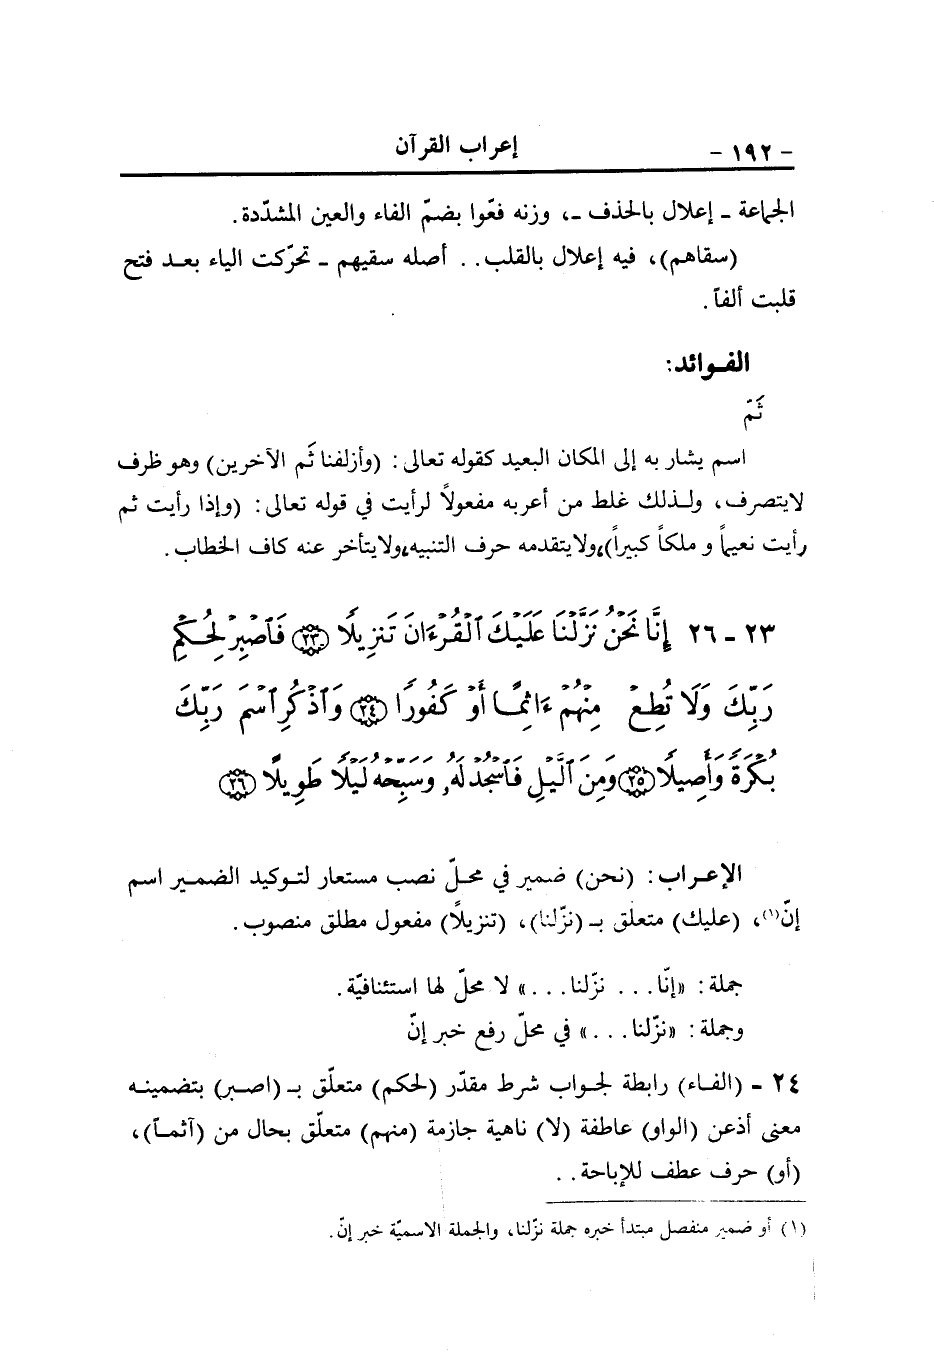 - ١٩٢ - إعراب القرآن
الجماعة ـ إعلال بالحذف ـ، وزنه فعّوا بضمّ الفاء والعين المشدّدة.
(سقاهم)، فيه إعلال بالقلب.. أصله سقيهم ـ تحرّكت الياء بعـد فتح
قلبت ألفاً.
الفـوائد:
ثَمّ
اسم يشار به إلى المكان البعيد كقوله تعالى: (وأزلفنا ثَم الآخرين) وهو ظرف
لايتصرف، ولـذلك غلط من أعربه مفعولاً لرأيت في قوله تعالى: (وإذا رأيت ثم
رأيت نعيماً و ملكاً كبيراً)،ولايتقدمه حرف التنبيه،ولايتأخر عنه كاف الخطاب.
٢٣ ـ ٢٦ إِنَّا نَحْنُ نَزَّلْنَا عَلَيْكَ ٱلْقُرْءَانَ تَنزِيلًا ﴿٢٣﴾ فَٱصْبِرْ لِحُكْمِ
رَبِّكَ وَلَا تُطِعْ مِنْهُمْ ءَاثِمًا أَوْ كَفُورًا ﴿٢٤﴾ وَٱذْكُرِ ٱسْمَ رَبِّكَ
بُكْرَةً وَأَصِيلًا ﴿٢٥﴾ وَمِنَ ٱلَّيْلِ فَٱسْجُدْ لَهُۥ وَسَبِّحْهُ لَيْلًا طَوِيلًا ﴿٢٦﴾
الإعـراب: (نحن) ضمير في محـلّ نصب مستعار لتـوكيد الضمـير اسم
إنّ(١)، (عليك) متعلّق بـ (نزّلنا)، (تنزيلاً) مفعول مطلق منصوب.
جملة: «إنّا... نزّلنا...» لا محلّ لها استئنافيّة.
وجملة: «نزّلنا...» في محلّ رفع خبر إنّ
٢٤ - (الفـاء) رابطة لجواب شرط مقدّر (لحكم) متعلّق بـ (اصبر) بتضمينـه
معنى أذعن (الواو) عاطفة (لا) ناهية جازمة (منهم) متعلّق بحال من (آثمـاً)،
(أو) حرف عطف للإباحة..
(١) أو ضمير منفصل مبتدأ خبره جملة نزّلنا، والجملة الاسميّة خبر إنّ.